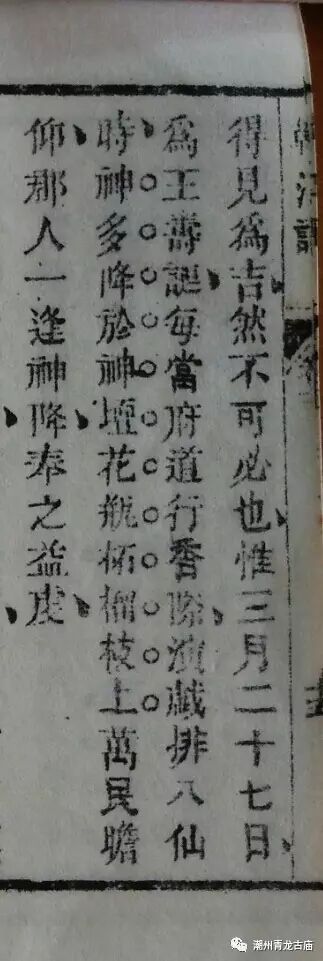 得見為吉然不可必也惟三月二十七日
為王壽誕每當府道行香際演戲排八仙
時神多降於神壇花瓶柘榴枝上萬民瞻
仰那人一逢神降奉之益虔
潮州青龙古庙